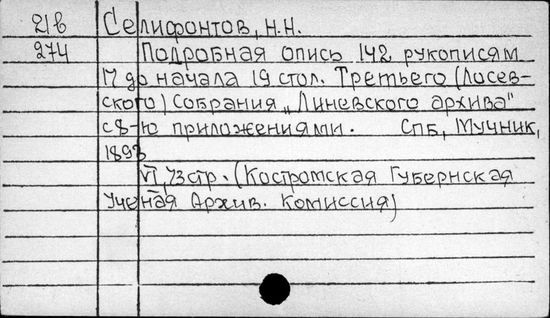 21в Селифонтов, Н.Н.
274 Подробная опись 142 рукописям
17 до начала 19 стол. Третьего (Лосев-
ского) Собрания „Линевского архива"
с 8-ю приложениями. СПБ, Мучник,
1893
VI, 73 стр. (Костромская Губернская
Ученая Архив. Комиссия)